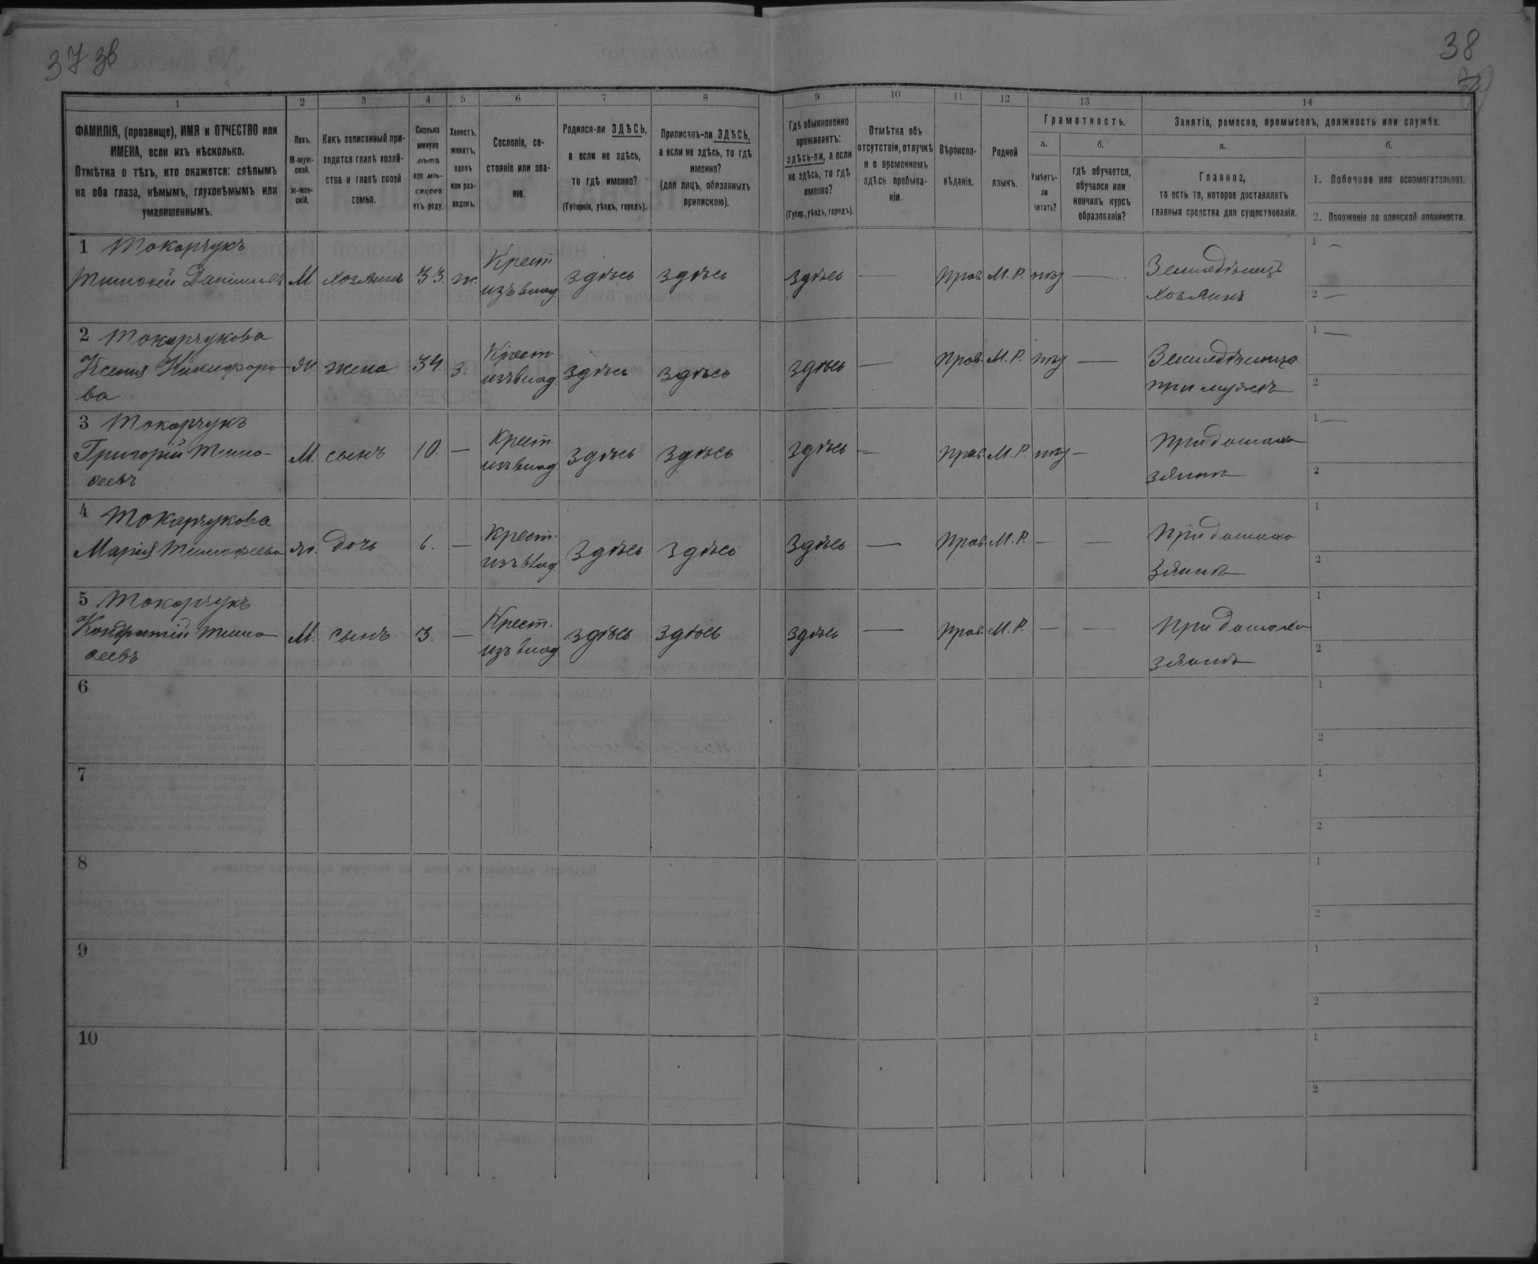 37 зв
38
1
2
3
4
5
6
7
8
9
10
11
12
13
14
ФАМИЛІЯ, (прозвище), ИМЯ и ОТЧЕСТВО или
ИМЕНА, если ихъ нѣсколько.
Отмѣтка о тѣхъ, кто окажется: слѣпымъ
на оба глаза, нѣмымъ, глухонѣмымъ или
умалишеннымъ.
Полъ.
М-муж-
ской.
Ж-жен-
скій.
Какъ записанный при-
ходится главѣ хозяй-
ства и главѣ своей
семьи.
Сколько
минуло
лѣтъ
или мѣ-
сяцевъ
отъ роду.
Холостъ,
женатъ,
вдовъ
или раз-
веденъ.
Сословіе, со-
стояніе или зва-
ніе.
Родился-ли ЗДѢСЬ,
а если не здѣсь,
то гдѣ именно?
(Губернія, уѣздъ, городъ).
Приписанъ-ли ЗДѢСЬ,
а если не здѣсь, то гдѣ
именно?
(для лицъ, обязанныхъ
припискою).
Гдѣ обыкновенно
проживаетъ:
здѣсь-ли, а если
не здѣсь, то гдѣ
именно?
(Губер., уѣздъ, городъ).
Отмѣтка объ
отсутствіи, отлучкѣ
и о временномъ
здѣсь пребыва-
ніи.
Вѣроиспо-
вѣданіе.
Родной
языкъ.
Грамотность.
а.
Умѣетъ-
ли
читать?
б.
гдѣ обучается,
обучался или
кончилъ курсъ
образованія?
Занятія, ремесло, промыселъ, должность или служба.
а.
Главное,
то есть то, которое доставляетъ
главныя средства для существованія.
б.
1. Побочное или вспомогательное.
2. Положеніе по воинской повинности.
1 Токарчукъ
Тимофей Даниловъ М хозяинъ 33. ж. Крест. изъ влад здѣсь здѣсь здѣсь — Прав. М. Р. — Земледѣлецъ
хозяинъ
1 —
2 —
2 Токарчукова
Ксенія Никифоро-
ва ж жена 34 з. Крест. изъ влад здѣсь здѣсь здѣсь — Прав. М. Р. — Земледѣлица
при мужѣ
1 —
2
3 Токарчукъ
Григорій Тимо-
феевъ М. сынъ 10. — Крест. изъ влад здѣсь здѣсь здѣсь — Прав. М. Р. —
1 —
2
4 Токарчукова
Марія Тимофеева ж. дочь 6. — Крест. изъ влад здѣсь здѣсь здѣсь — Прав. М. Р. — —
1
2
5 Токарчукъ
Тимо-
феевъ М. сынъ 3. — Крест. изъ влад здѣсь здѣсь здѣсь — Прав. М. Р. — —
1
2
6
1
2
7
1
2
8
1
2
9
1
2
10
1
2